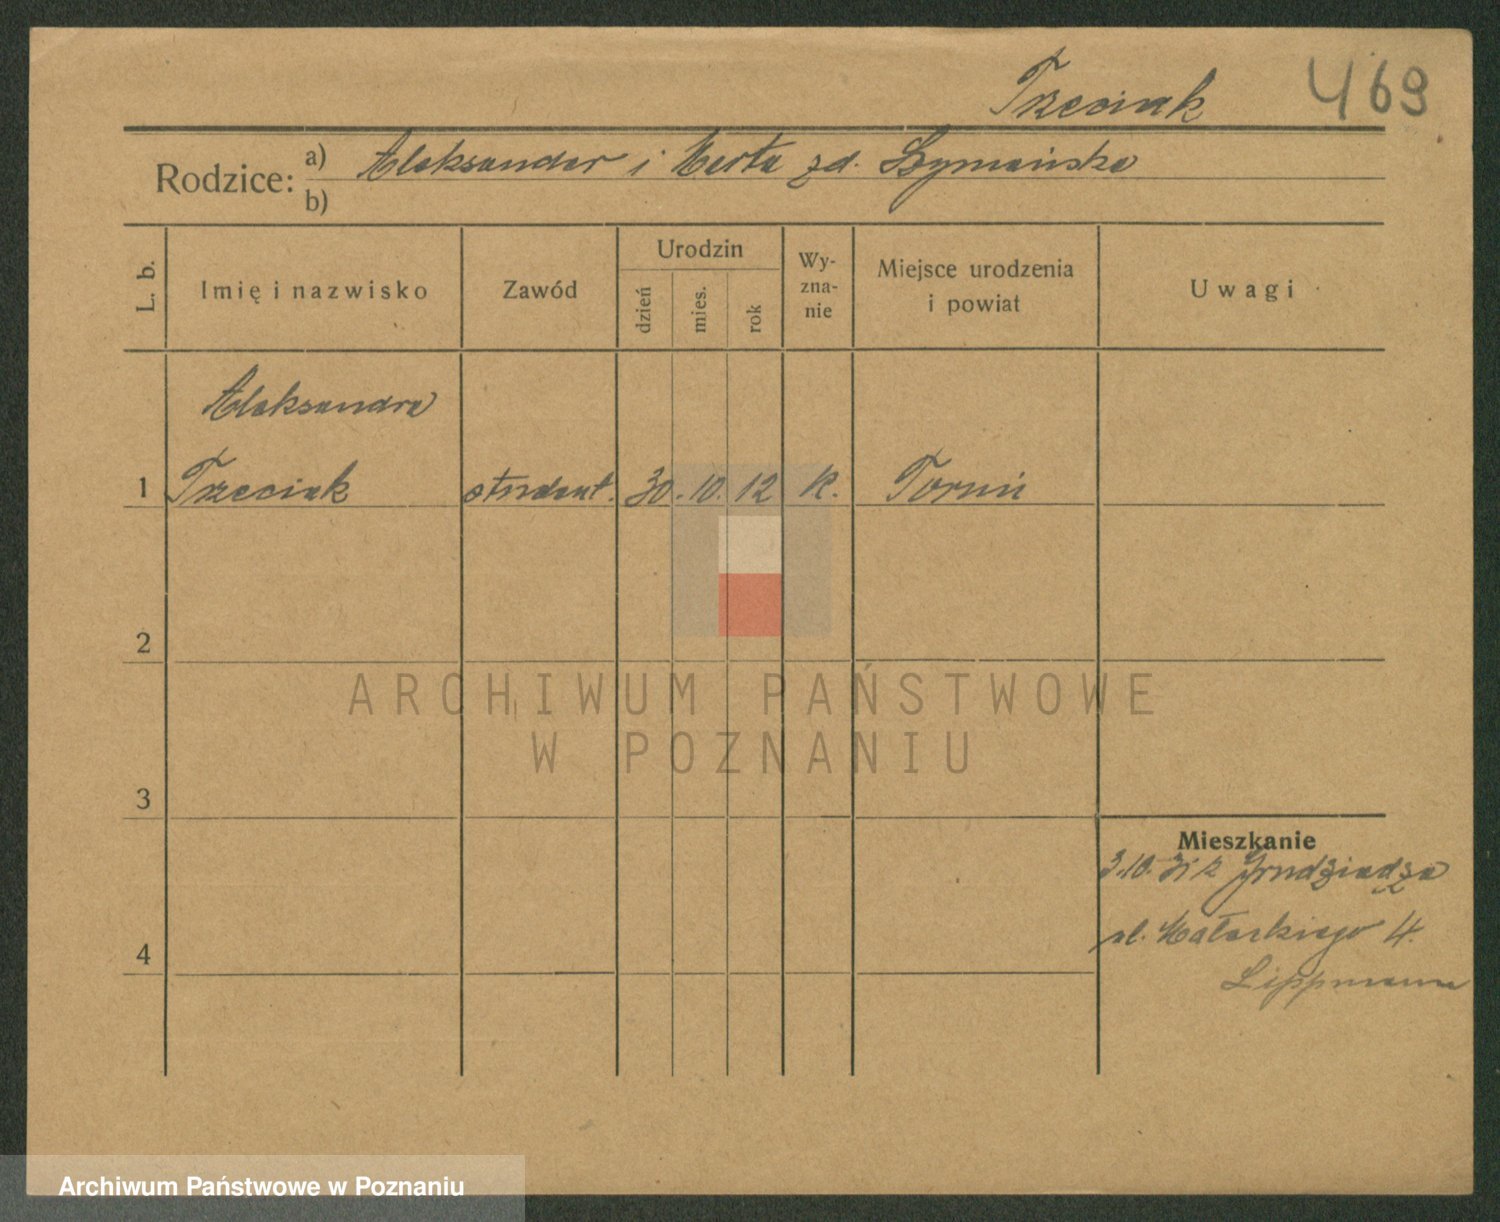 Trzeciak 469
Rodzice: a) Aleksander i Merta zd. Szymańska
b)
L. b.
Imię i nazwisko
Zawód
Urodzin
dzień
mies.
rok
Wy-
zna-
nie
Miejsce urodzenia
i powiat
Uwagi
Aleksandra
1 Trzeciak student. 30. 10. 12 k. Toruń
2
3
4
Mieszkanie
3.10.31 z Grudziądza
ul. Małeckiego 4.
Lippmann
ARCHIWUM PAŃSTWOWE
W POZNANIU
Archiwum Państwowe w Poznaniu